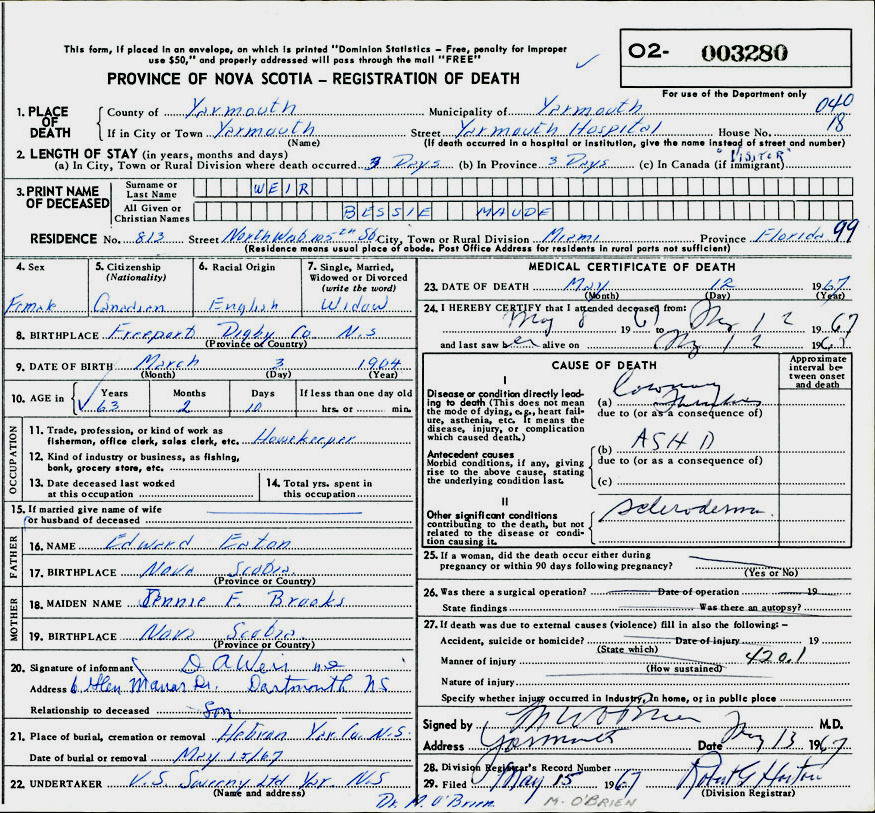 This form, if placed in an envelope, on which is printed "Dominion Statistics – Free, penalty for improper
use $50," and properly addressed will pass through the mail "FREE"
PROVINCE OF NOVA SCOTIA – REGISTRATION OF DEATH
O2- 003280
For use of the Department only
040
18
1. PLACE OF DEATH
County of Yarmouth Municipality of Yarmouth
If in City or Town Yarmouth Street Yarmouth Hospital House No.
(Name) (If death occurred in a hospital or institution, give the name instead of street and number)
2. LENGTH OF STAY (in years, months and days) "VISITER"
(a) In City, Town or Rural Division where death occurred 3 Days (b) In Province 3 Days (c) In Canada (if immigrant)
3. PRINT NAME OF DECEASED
Surname or Last Name WEIR
All Given or Christian Names BESSIE MAUDE
RESIDENCE No. 813 Street North West 105th St. City, Town or Rural Division Miami Province Florida 99
(Residence means usual place of abode. Post Office Address for residents in rural parts not sufficient)
4. Sex Female
5. Citizenship (Nationality) Canadian
6. Racial Origin English
7. Single, Married, Widowed or Divorced (write the word) Widow
8. BIRTHPLACE Freeport Digby Co N.S
(Province or Country)
9. DATE OF BIRTH March 3 1904
(Month) (Day) (Year)
10. AGE in Years 63 Months 2 Days 10 If less than one day old
hrs. or min.
OCCUPATION
11. Trade, profession, or kind of work as
fisherman, office clerk, sales clerk, etc. Housekeeper
12. Kind of industry or business, as fishing,
bank, grocery store, etc.
13. Date deceased last worked
at this occupation
14. Total yrs. spent in
this occupation
15. If married give name of wife
or husband of deceased
FATHER
16. NAME Edward Eaton
17. BIRTHPLACE Nova Scotia
(Province or Country)
MOTHER
18. MAIDEN NAME Jennie F. Brooks
19. BIRTHPLACE Nova Scotia
(Province or Country)
20. Signature of informant D A Weir
Address 6 Glen Manor Dr. Dartmouth NS
Relationship to deceased Son
21. Place of burial, cremation or removal Hebron Yar. Co. N.S.
Date of burial or removal May 15/67
22. UNDERTAKER V.S. Sweeny Ltd Yar. N.S
(Name and address)
Dr. M. O'Brien
MEDICAL CERTIFICATE OF DEATH
23. DATE OF DEATH May 12 1967
(Month) (Day) (Year)
24. I HEREBY CERTIFY that I attended deceased from:
May 8 1967 to May 12 1967
and last saw her alive on May 12 1967
CAUSE OF DEATH
Approximate interval between onset and death
I
Disease or condition directly leading to death (This does not mean the mode of dying, e.g., heart failure, asthenia, etc. It means the disease, injury, or complication which caused death.)
(a) Coronary Thrombosis
due to (or as a consequence of)
Antecedent causes
Morbid conditions, if any, giving rise to the above cause, stating the underlying condition last.
(b) ASHD
due to (or as a consequence of)
(c)
II
Other significant conditions
contributing to the death, but not related to the disease or condition causing it.
Scleroderma
25. If a woman, did the death occur either during
pregnancy or within 90 days following pregnancy?
(Yes or No)
26. Was there a surgical operation? Date of operation 19
State findings Was there an autopsy?
27. If death was due to external causes (violence) fill in also the following: –
Accident, suicide or homicide? Date of injury 19
(State which)
Manner of injury 420.1
(How sustained)
Nature of injury
Specify whether injury occurred in Industry, in home, or in public place
Signed by M W O'Brien M.D.
Address Yarmouth Date May 13 1967
28. Division Registrar's Record Number
29. Filed May 15 1967 Robert G Horton
(Division Registrar)
M. O'BRIEN